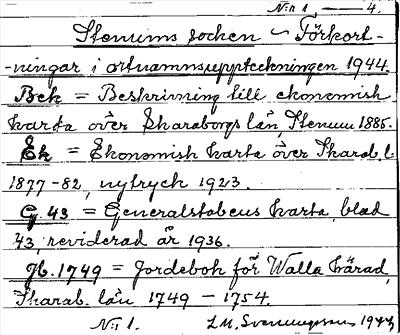 N:r 1 — 4.
Stenums socken ~ Förkort-
-ningar i ortnamnsuppteckningen 1944.
Bek = Beskrivning till ekonomisk
karta över Skaraborgs län Stenum 1885.
Ek = Ekonomisk karta över Skarab. l.
1877-82, nytryck 1923.
G 43 = Generalstabens karta, blad
43, reviderad år 1936.
Jb. 1749 = Jordebok för Walla härad,
Skarab. län 1749 – 1754.
N:r 1. L.M. Svenungsson, 1944